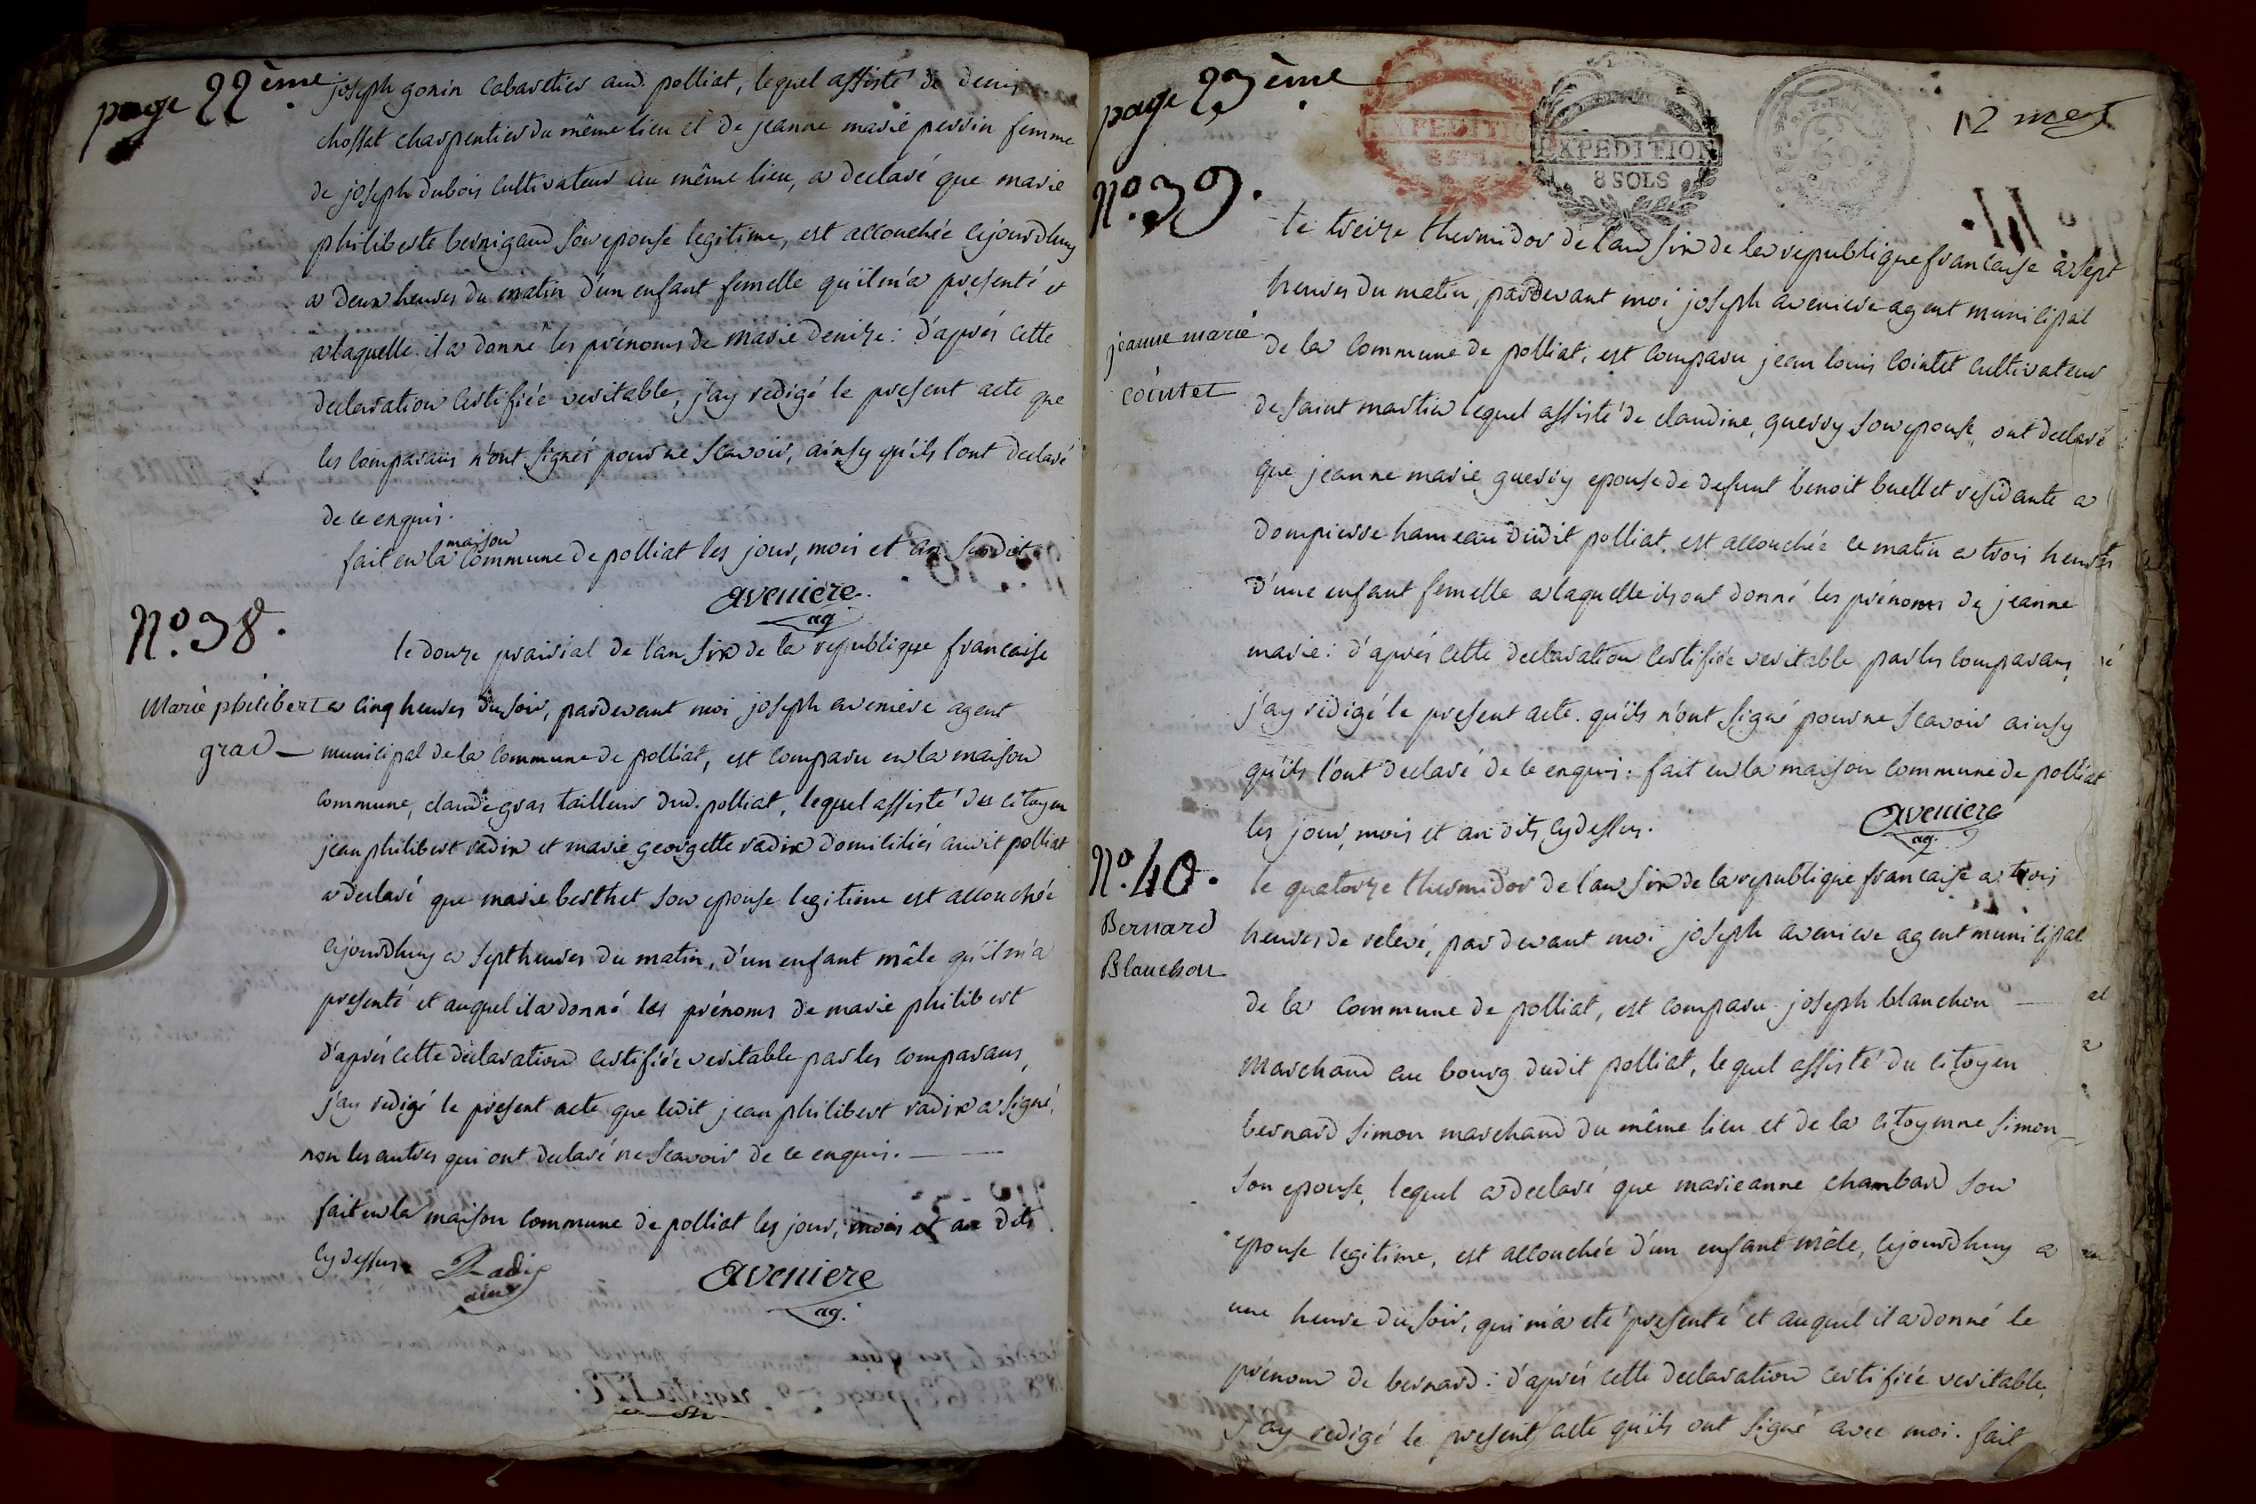 page 22ème
joseph gonin cabaretier aud. polliat, lequel assisté de denis
chossat charpentier du même lieu et de jeanne marie perrin femme
de joseph dubois cultivateur au même lieu, a declaré que marie
philiberte bernigaud son epouse legitime, est accouchée cejourdhuy
a deux heures du matin d'un enfant femelle qu'il m'a presenté et
a laquelle il a donné les prénoms de marie denize : d'aprés cette
declaration certifiée veritable, j'ay redigé le present acte que
les comparans n'ont signés pour ne scavoir, ainsy qu'ils l'ont declaré
de ce enquis.
fait en la maison commune de polliat les jour, mois et an susdit
aveniere
ag
N.º 38.
le douze prairial de l'an six de la republique francaise
Marie philibert
grad
a cinq heures du soir, pardevant moi joseph aveniere agent
municipal de la commune de polliat, est comparu en la maison
commune, claude gras tailleur dud. polliat, lequel assisté des citoyen
jean philibert radix et marie georgette radix domiciliés audit polliat
a declaré que marie berthet son epouse legitime est accouchée
cejourdhuy a sept heures du matin, d'un enfant mâle qu'il m'a
presenté et auquel il a donné les prénoms de marie philibert
d'aprés cette declaration certifiée veritable par les comparans,
j'ay redigé le present acte que ledit jean philibert radix a signé,
non les autres qui ont declaré ne scavoir de ce enquis.
fait en la maison commune de polliat les jour, mois et an dits
cy dessus
Radix
ainé
aveniere
ag.
page 23ème
EXPEDITION
8 SOLS
EXPEDITION
8 SOLS
12 mess
N.º 39.
le treize thermidor de l'an six de la republique francaise a sept
heures du matin, pardevant moi joseph aveniere agent municipal
jeanne marie
cointet
de la commune de polliat, est comparu jean louis cointet cultivateur
de saint martin lequel assisté de claudine guerry son epouse, ont declaré
que jeanne marie guerry epouse de defunt benoit buellet residante a
dompierre hameau dudit polliat, est accouchée ce matin a trois heures
d'une enfant femelle a laquelle ils ont donné les prénoms de jeanne
marie : d'aprés cette declaration certifiée veritable par les comparans,
j'ay redigé le present acte qu'ils n'ont signé pour ne scavoir ainsy
qu'ils l'ont declaré de ce enquis : fait en la maison commune de polliat
les jour, mois et an dits cy dessus.
aveniere
ag.
N.º 40.
Bernard
Blanchon
le quatorze thermidor de l'an six de la republique francaise a trois
heures de relevé, pardevant moi joseph aveniere agent municipal
de la commune de polliat, est comparu joseph blanchon
marchand au bourg dudit polliat, lequel assisté du citoyen
bernard simon marchand du même lieu et de la citoyenne simon
son epouse, lequel a declaré que marieanne chambard son
epouse legitime, est accouchée d'un enfant mâle, cejourdhuy a
une heure du soir, qui m'a eté presenté et auquel il a donné le
prénom de bernard : d'aprés cette declaration certifiée veritable,
j'ay redigé le present acte qu'ils ont signé avec moi. fait